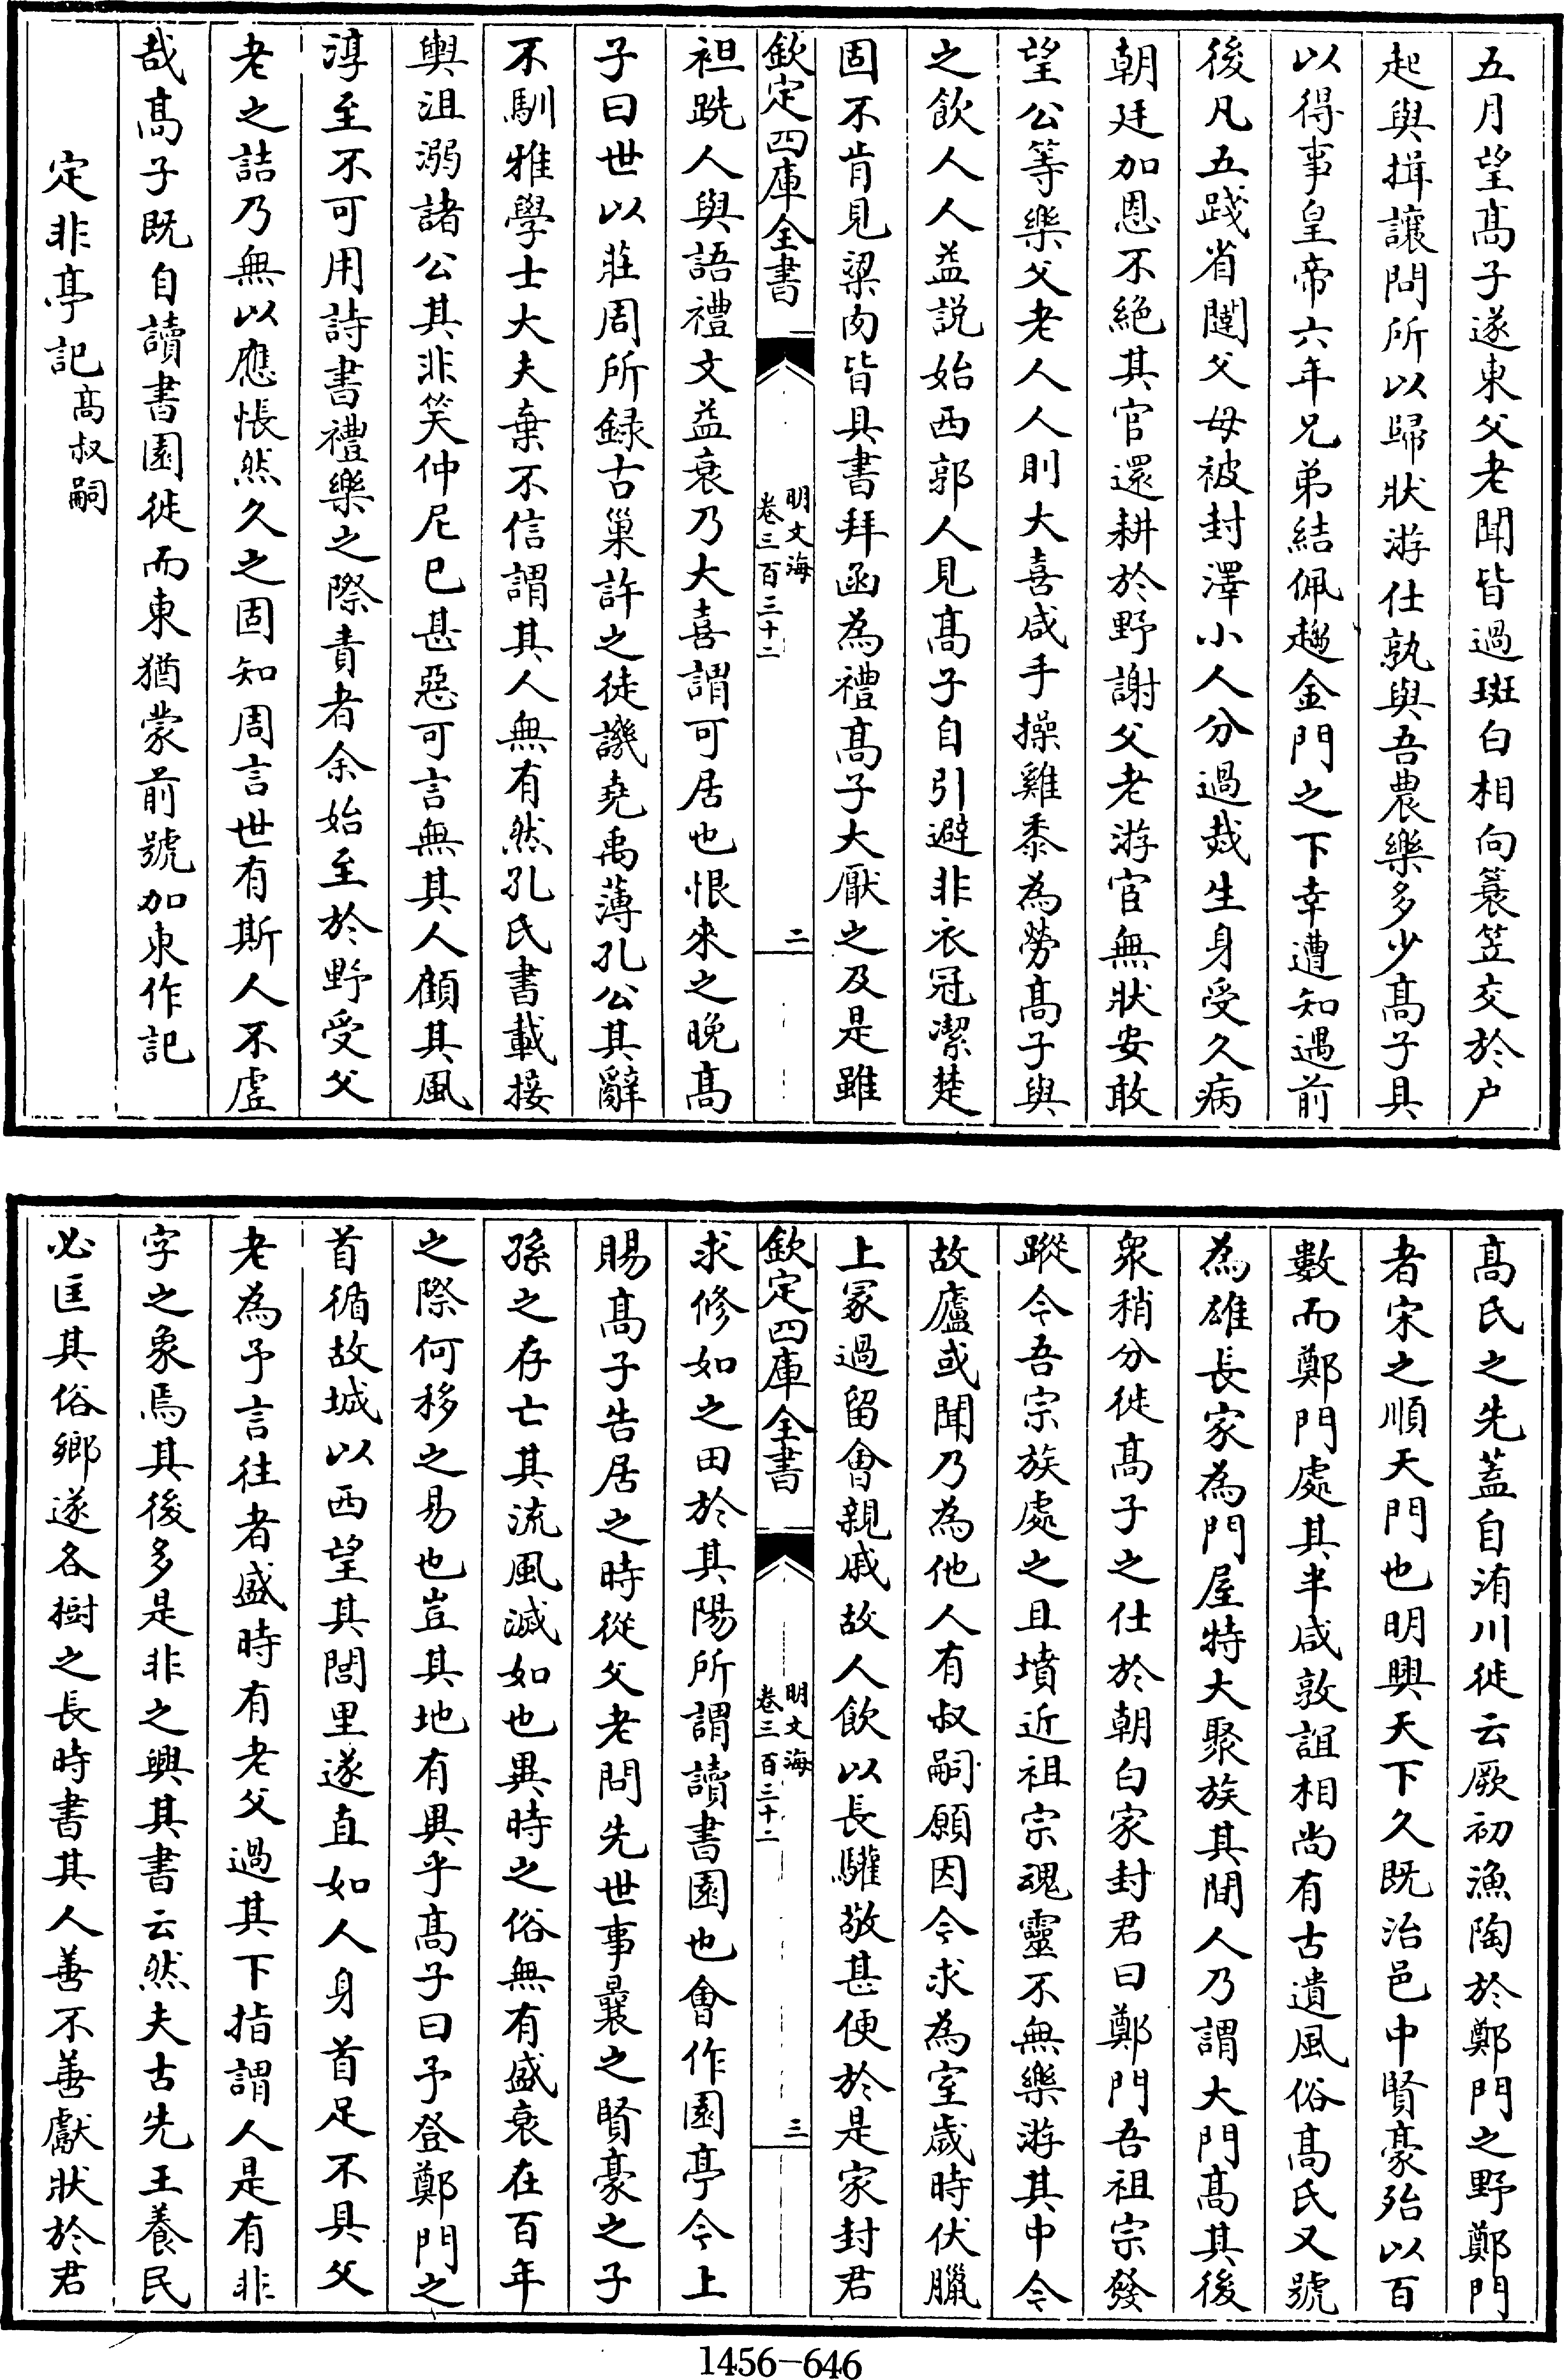 五月望髙子遂東父老聞皆過斑白相向蓑笠交於户
起與揖讓問所以歸狀游仕孰與吾農樂多少髙子具
以得事皇帝六年兄弟結佩趨金門之下幸遭知遇前
後凡五踐省闥父母被封澤小人分過烖生身受久病
朝廷加恩不絶其官還耕於野謝父老游官無狀安敢
望公等樂父老人人則大喜咸手操雞黍為勞髙子與
之飲人人益説始西郭人見髙子自引避非衣冠潔楚
固不肯見粱肉皆具書拜函為禮髙子大厭之及是雖
欽定四庫全書
明文海
卷三百三十二
二
袒跣人與語禮文益衰乃大喜謂可居也恨來之晚髙
子曰世以莊周所録古巢許之徒譏堯禹薄孔公其辭
不馴雅學士大夫棄不信謂其人無有然孔氏書載接
輿沮溺諸公其非笑仲尼已甚惡可言無其人顧其風
淳至不可用詩書禮樂之際責者余始至於野受父
老之詰乃無以應悵然久之固知周言世有斯人不虚
哉髙子既自讀書園徙而東猶蒙前號加東作記
定非亭記髙叔嗣
髙氏之先葢自洧川徙云厥初漁陶於鄭門之野鄭門
者宋之順天門也明興天下久既治邑中賢豪殆以百
數而鄭門處其半咸敦誼相尚有古遺風俗髙氏又號
為雄長家為門屋特大聚族其間人乃謂大門髙其後
衆稍分徙髙子之仕於朝白家封君曰鄭門吾祖宗發
蹤今吾宗族處之且墳近祖宗魂靈不無樂游其中今
故廬或聞乃為他人有叔嗣願因今求為室歲時伏臘
上冢過留會親戚故人飲以長驩敬甚便於是家封君
欽定四庫全書
明文海
卷三百三十二
三
求修如之田於其陽所謂讀書園也會作園亭今上
賜髙子告居之時從父老問先世事曩之賢豪之子
孫之存亡其流風滅如也異時之俗無有盛衰在百年
之際何移之易也豈其地有異乎髙子曰予登鄭門之
首循故城以西望其閭里遂直如人身首足不具父
老為予言往者盛時有老父過其下指謂人是有非
字之象焉其後多是非之興其書云然夫古先王養民
必匡其俗鄉遂各樹之長時書其人善不善獻狀於君
1456-646